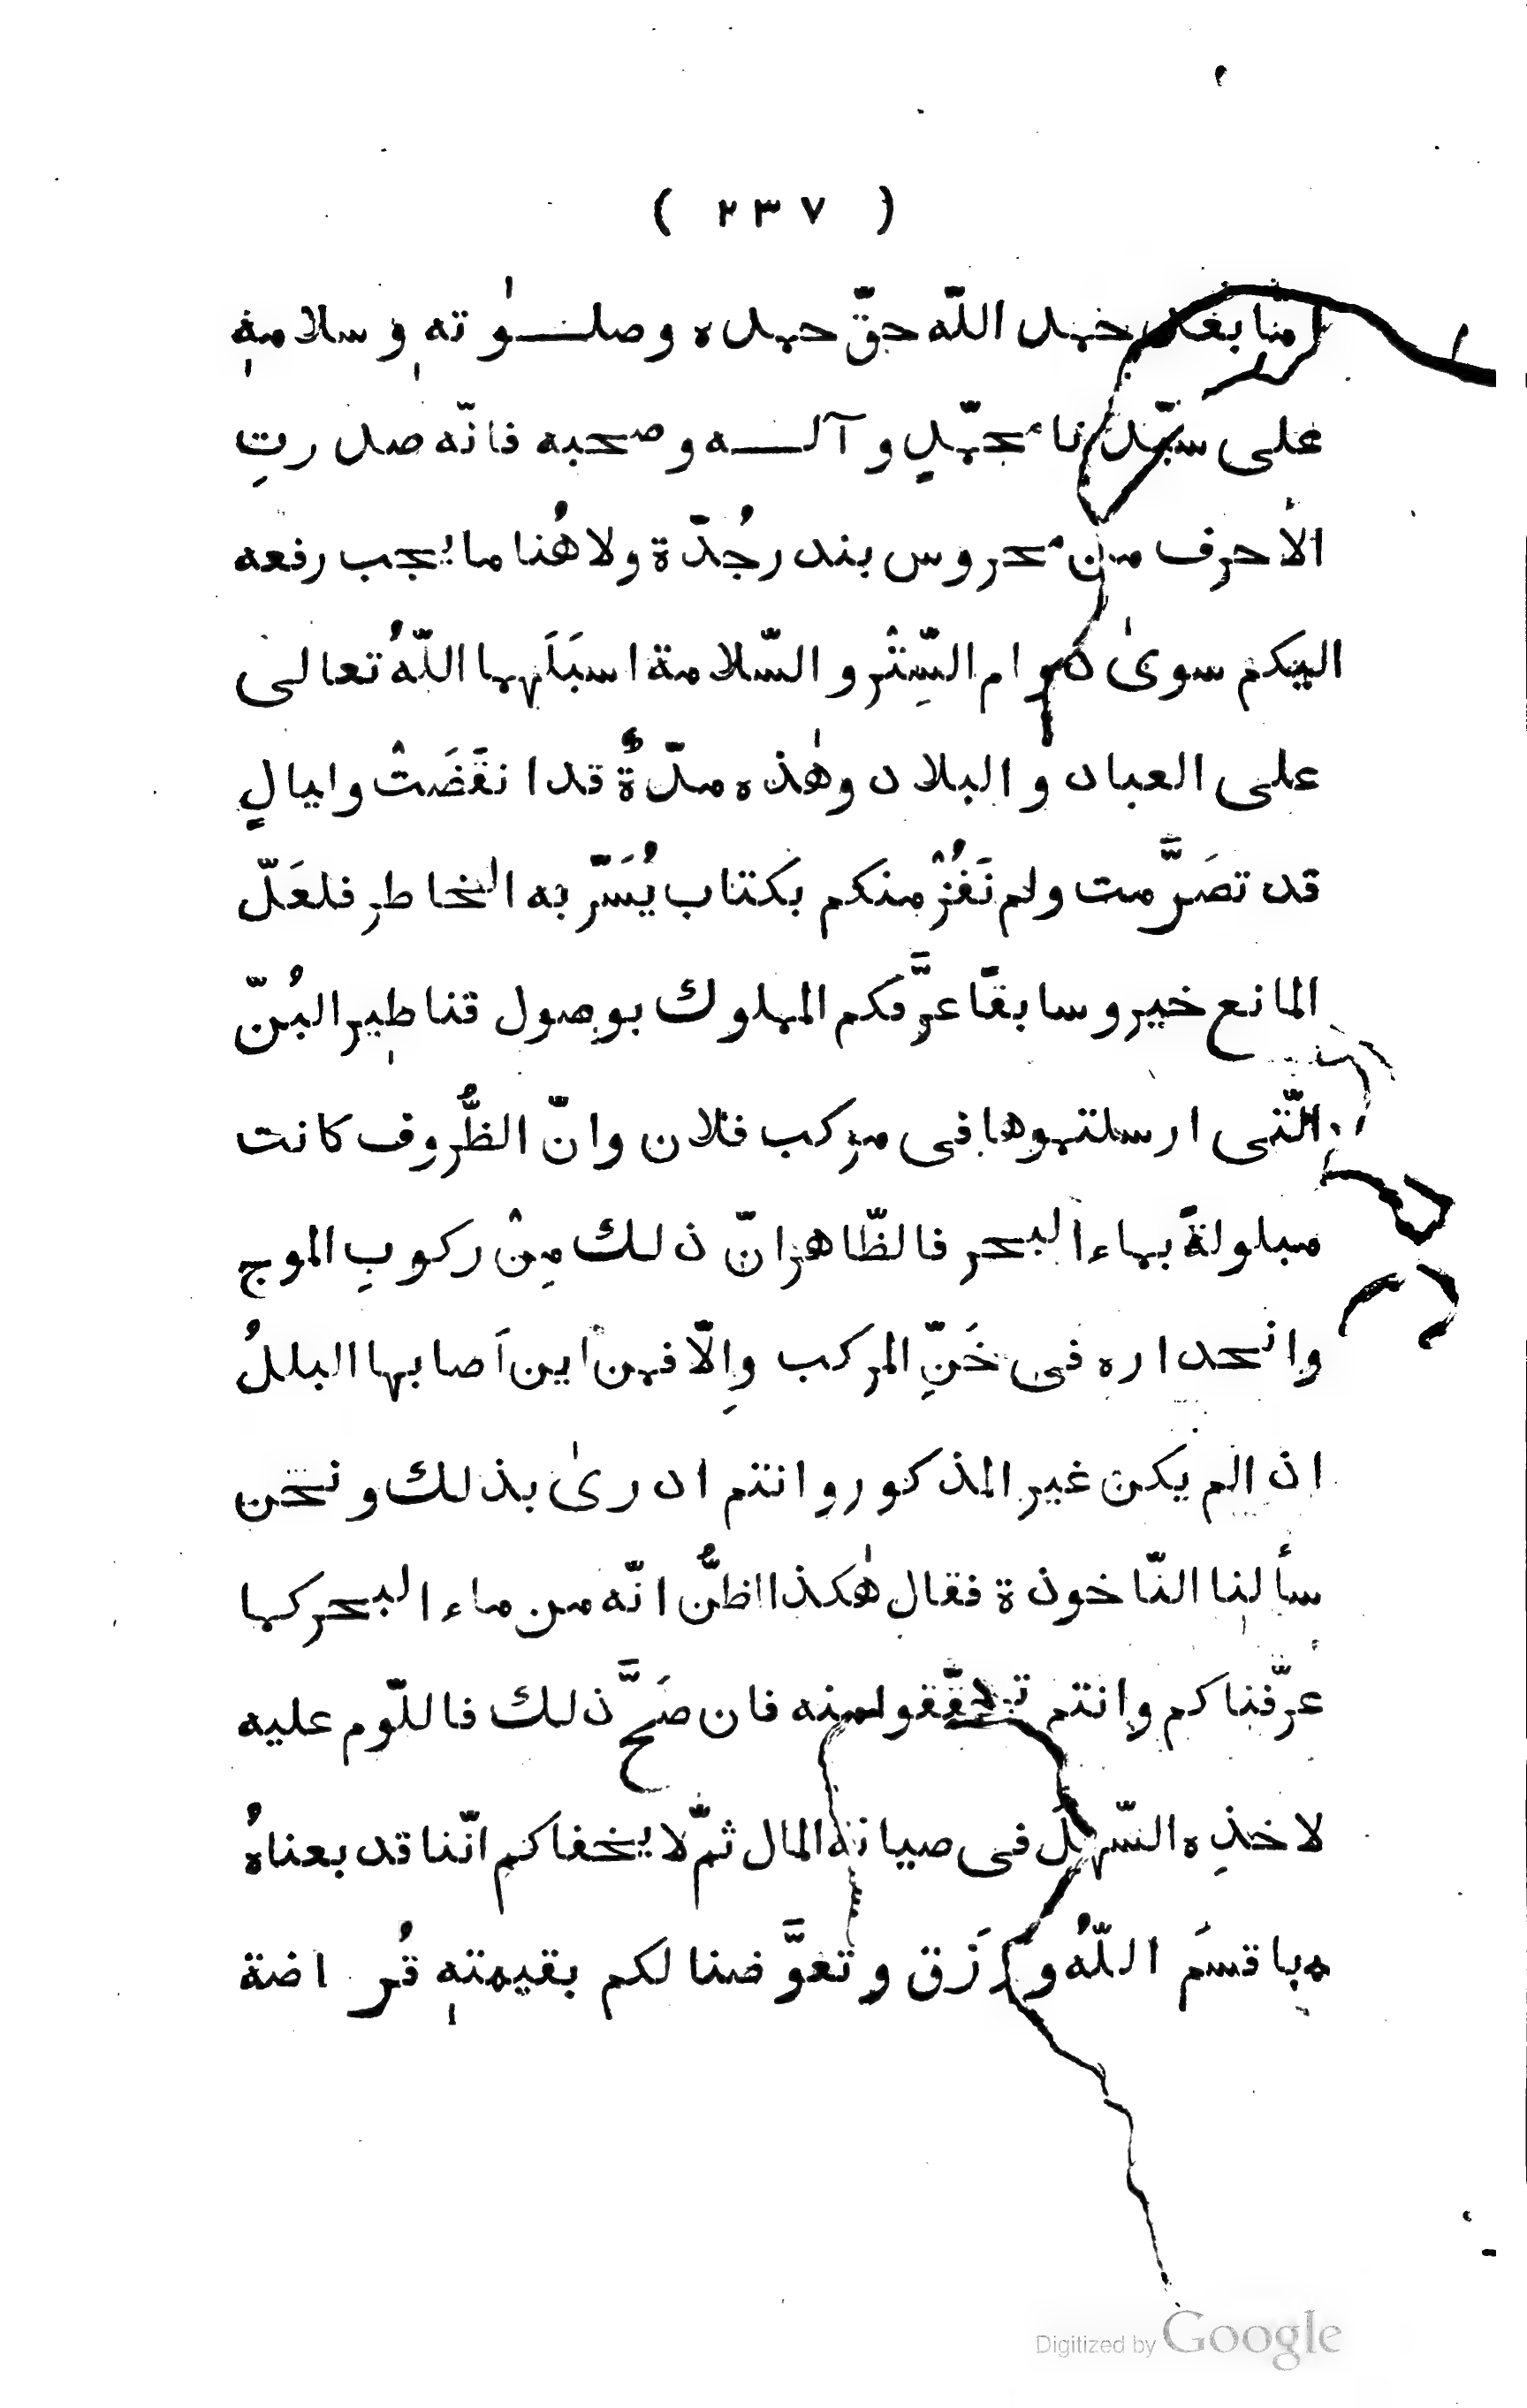 ( ٢٣٧ )
امّا بعد حمد اللّه حقّ حمده وصلوٰته وسلامه
على سيّدنا محمّدٍ وآله وصحبه فانّه صدرتِ
الأحرف من محروس بندر جُدّة ولا هُنا ما يجب رفعه
اليكم سوىٰ دوام السِّتْر والسّلامة اسبَلَهما اللّهُ تعالى
على العباد والبلاد وهٰذه مدّةٌ قد انقَضَتْ وليالٍ
قد تصَرَّمت ولم نَفُزْ منكم بكتاب يُسَرّ به الخاطر فلعَلّ
المانع خير وسابقًا عرَّفكم المملوك بوصول قناطير البُنّ
الّتى ارسلتموها فى مركب فلان وانّ الظُّروف كانت
مبلولةً بماء البحر فالظّاهر انّ ذلك مِنْ ركوبِ الموج
وانحداره فى خَنِّ المركب وإلّا فمن اين اَصابها البللُ
اذا لم يكن غير المذكور وانتم ادرىٰ بذلك ونحن
سألنا النّاخوذة فقال هٰكذا اظنُّ انّه من ماء البحر كما
عرّفناكم وانتم تحقّقوا منه فان صَحَّ ذلك فاللّوم عليه
لاخذِه السّهلَ فى صيانة المال ثمّ لا يخفاكم انّنا قد بعناهُ
بما قسَمَ اللّهُ ورَزَق وتعَوَّضنا لكم بقيمته قُراضة
Digitized by Google